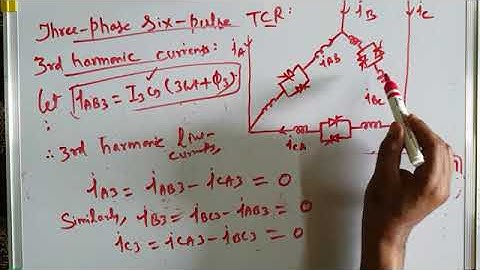 Three-phase six-pulse TCR:
3rd harmonic currents:
Let iAB3 = I3 Cos (3ωt+φ3)
∴ 3rd harmonic line-currents,
iA3 = iAB3 - iCA3 = 0
Similarly, iB3 = iBC3 - iAB3 = 0
iC3 = iCA3 - iBC3 = 0
iA
iB
iC
iAB
iBC
iCA